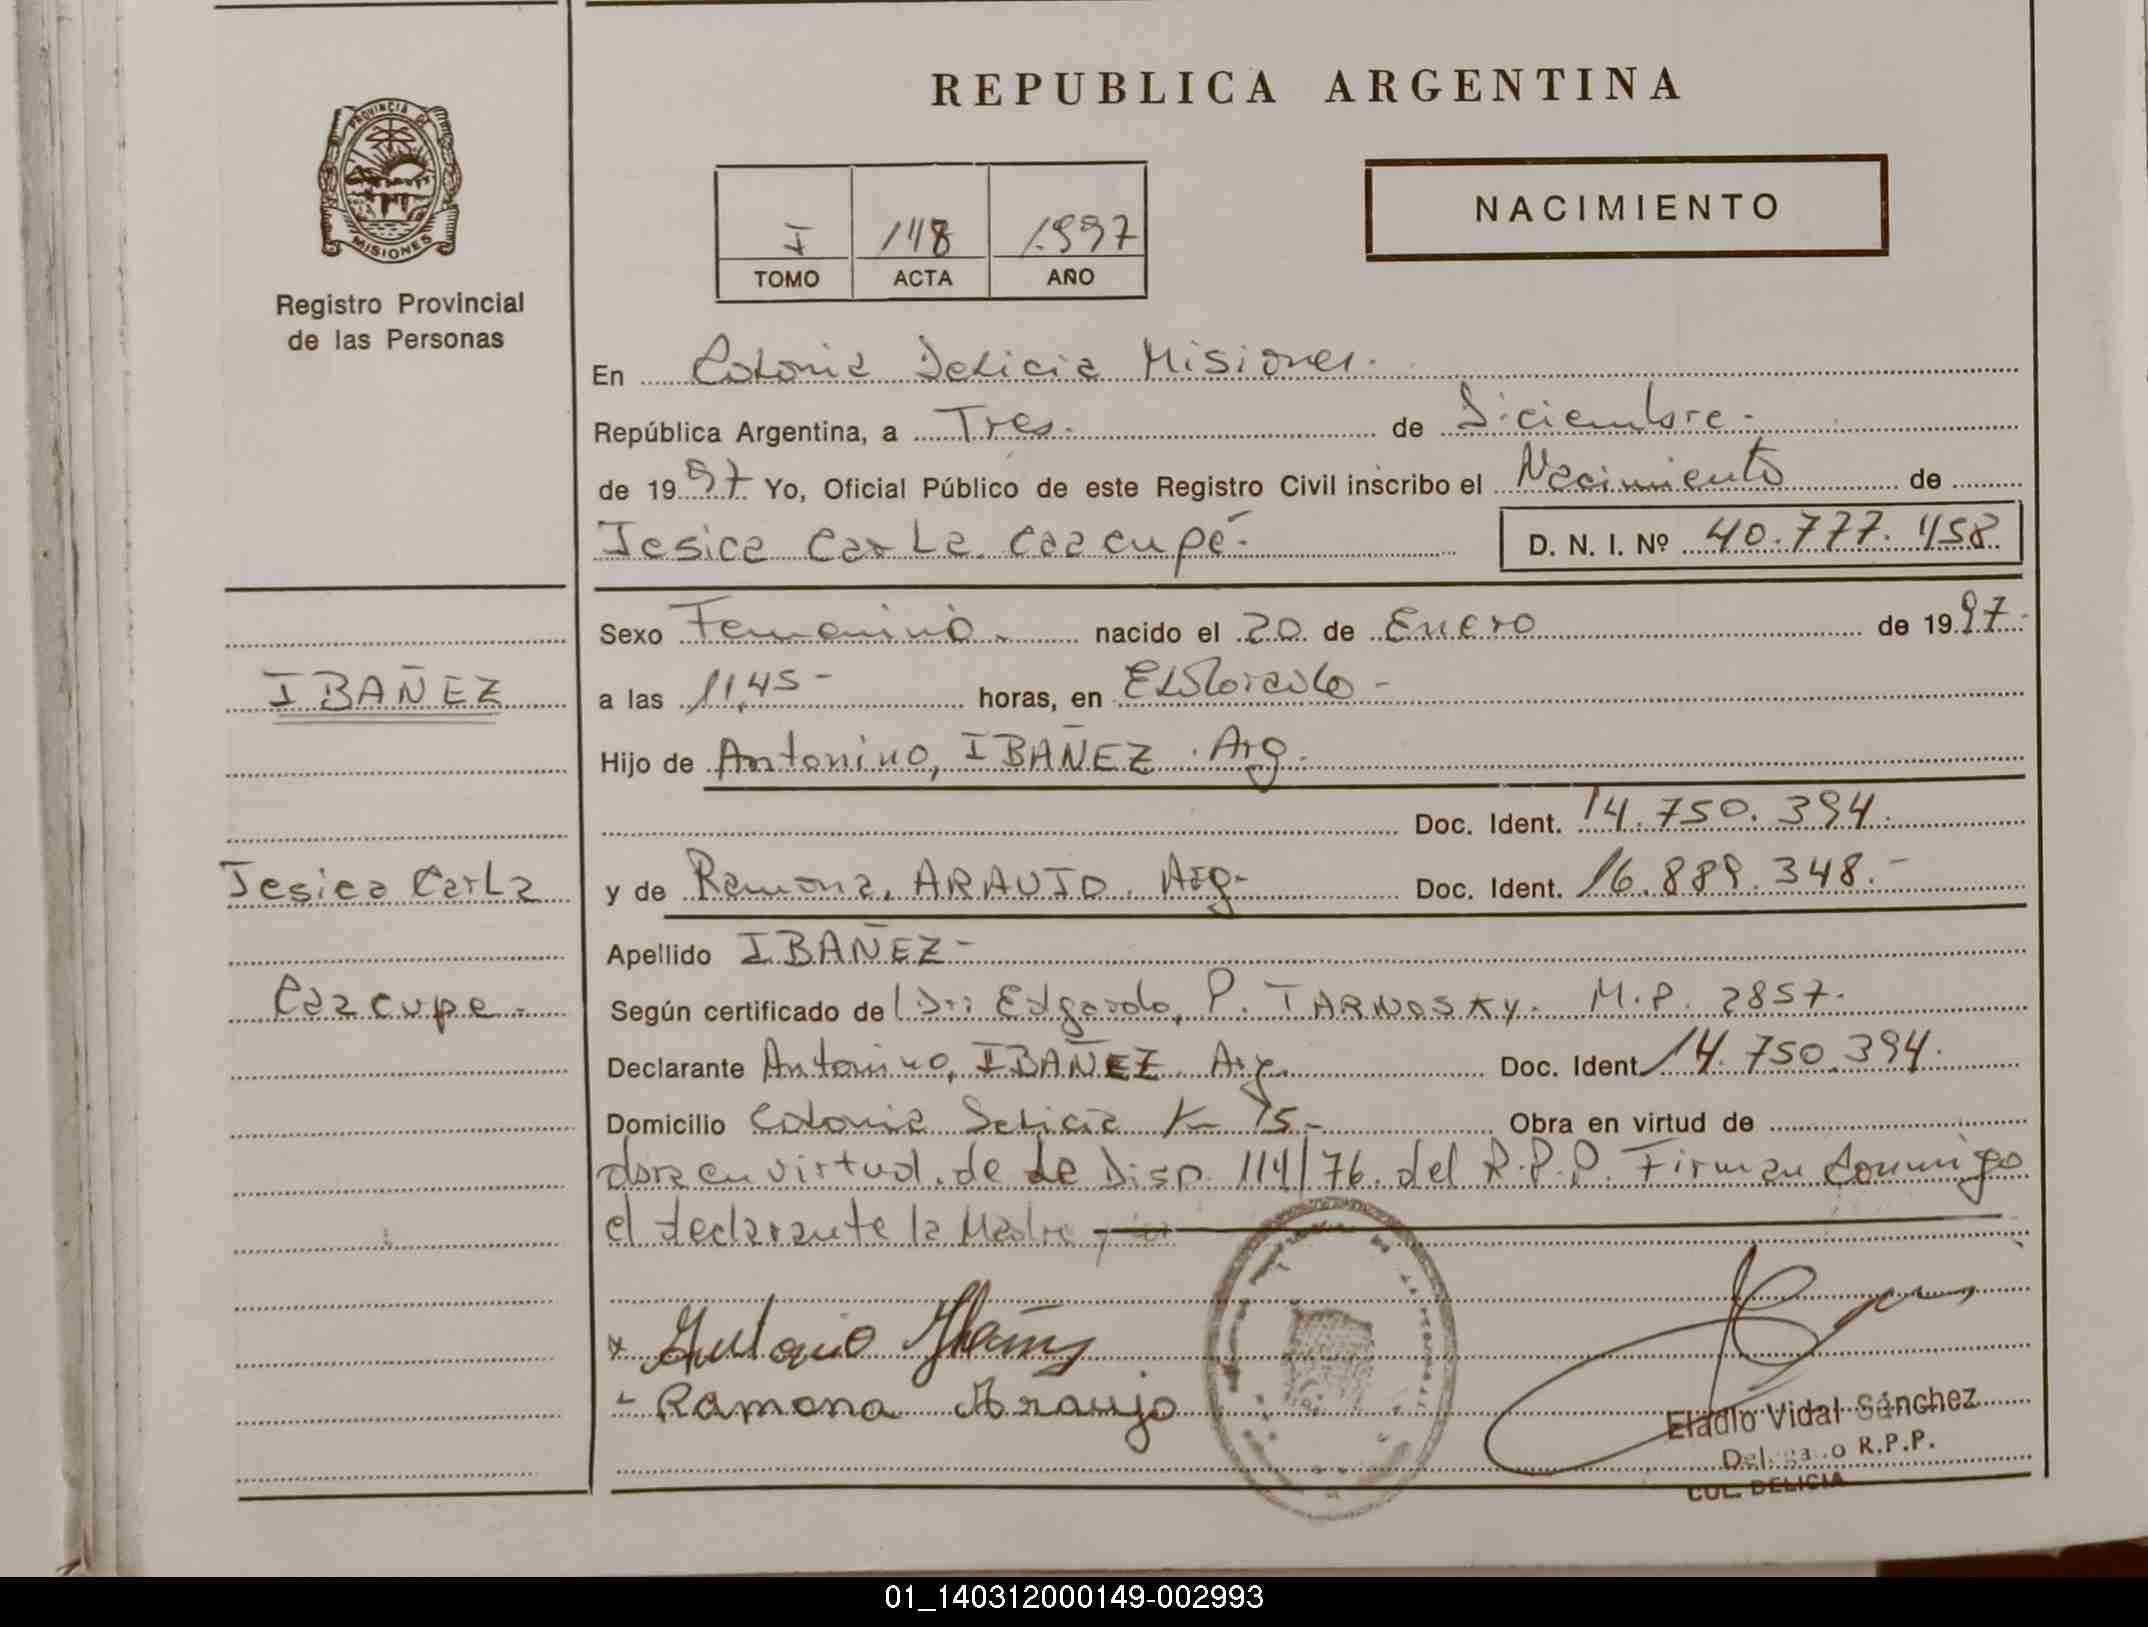 REPUBLICA ARGENTINA
PROVINCIA DE
MISIONES
Registro Provincial
de las Personas
NACIMIENTO
I 148 1997
TOMO ACTA AÑO
En Colonia Delicia Misiones.
República Argentina, a Tres. de Diciembre.
de 1997 Yo, Oficial Público de este Registro Civil inscribo el Nacimiento de
Jesica Carla Caacupé. D. N. I. Nº 40.777.458
Sexo Femenino. nacido el 20 de Enero de 1997.
a las 11,45- horas, en ELdorado-
Hijo de Antonino, IBAÑEZ. Arg.
Doc. Ident. 14.750.394.
y de Ramona, ARAUJO. Arg- Doc. Ident. 16.889.348.-
Apellido IBAÑEZ-
Según certificado de Dr: Edgardo, P. TARNOSKY. M.P. 2857.
Declarante Antonino, IBAÑEZ. Arg. Doc. Ident. 14.750.394.
Domicilio Colonia Delicia K 75.- Obra en virtud de
dora en virtud. de de Disp. 114/76. del R.P.P. Firman conmigo
el declarante la Madre
Antonio Ibañez
Ramona Araujo
Eladio Vidal Sánchez
R.P.P.
COL. DELICIA
IBAÑEZ
Jesica CarLa
Caacupe.-
01_140312000149-002993